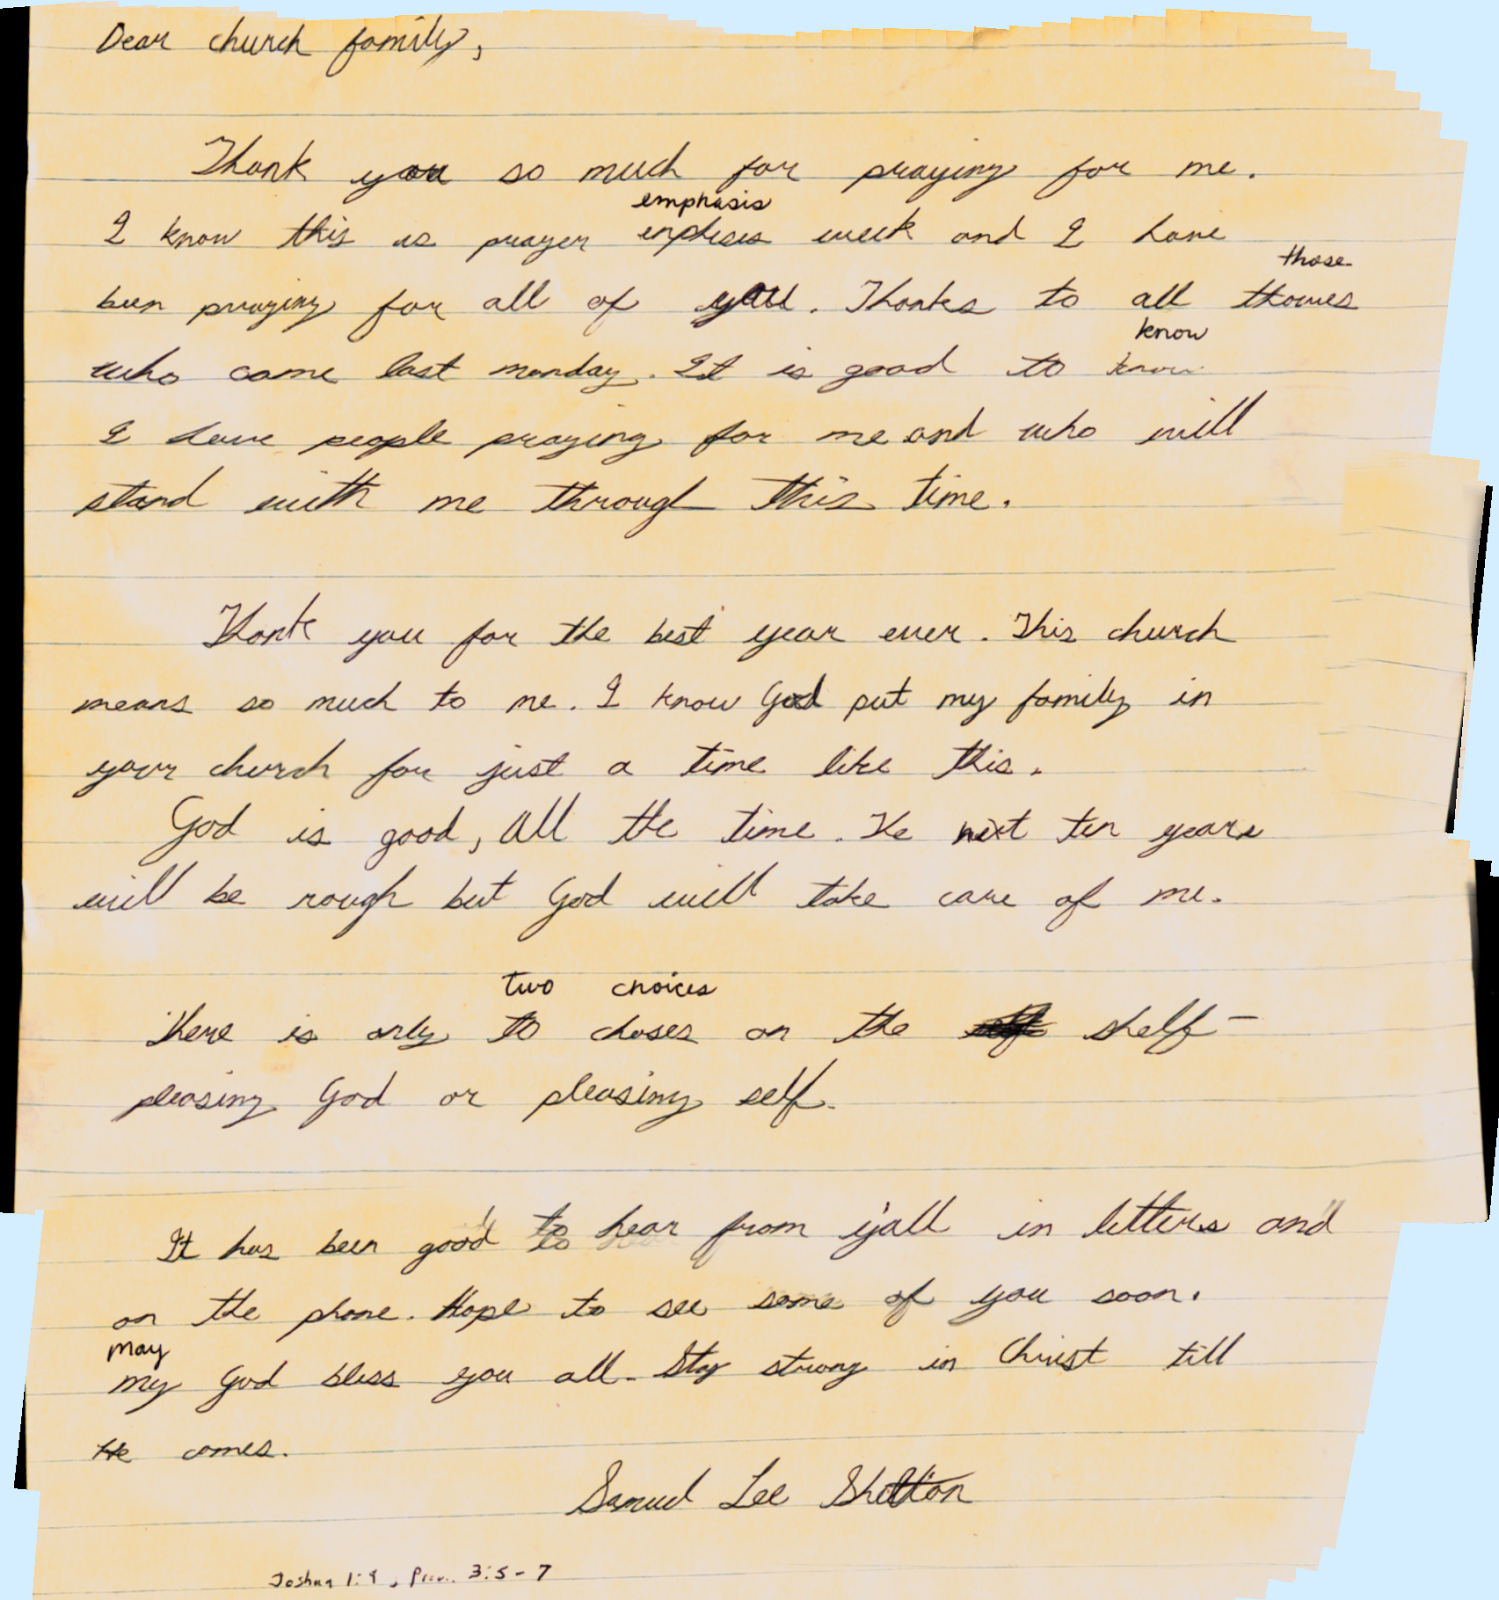 Dear church family,
Thank you so much for praying for me.
emphasis
I know this is prayer enphesis week and I have
those
been praying for all of yall. Thanks to all thowes
know
who came last monday. It is good to know
I have people praying for me and who will
stand with me through this time.
Thank you for the best year ever. This church
means so much to me. I know God put my family in
your church for just a time like this.
God is good, All the time. The next ten years
will be rough but God will take care of me.
two choices
There is only to choses on the shelf -
pleasing God or pleasing self.
It has been good to hear from y'all in letters and
on the phone. Hope to see some of you soon.
may
my God bless you all. Stay strong in Christ till
He comes.
Samuel Lee Shelton
Joshua 1:9, Prov. 3:5-7